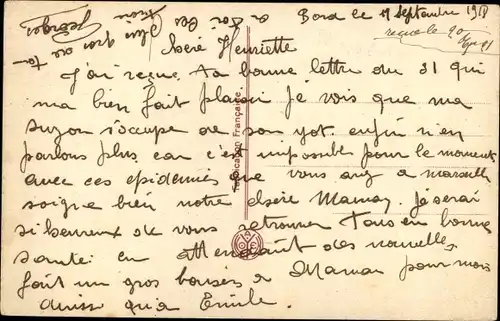 a Bord le 17 Septembre 1918
reçue le 20
Chère Henriette
J'ai reçue ta bonne lettre du 31 qui
ma bien fait plaisir je vois que ma
Suzon s'occupe de son yot enfin n'en
parlons plus car c'est impossible pour le moment
avec ces epidemies que vous avez a marseille
soigne bien notre chère Maman. Je serai
si heureux de vous retrouver Tous en bonne
santé. en attendant des nouvelles
fait un gros baiser a Maman pour moi
aussi qu'a Emile.
ton
plus
Georges
Fabrication Française